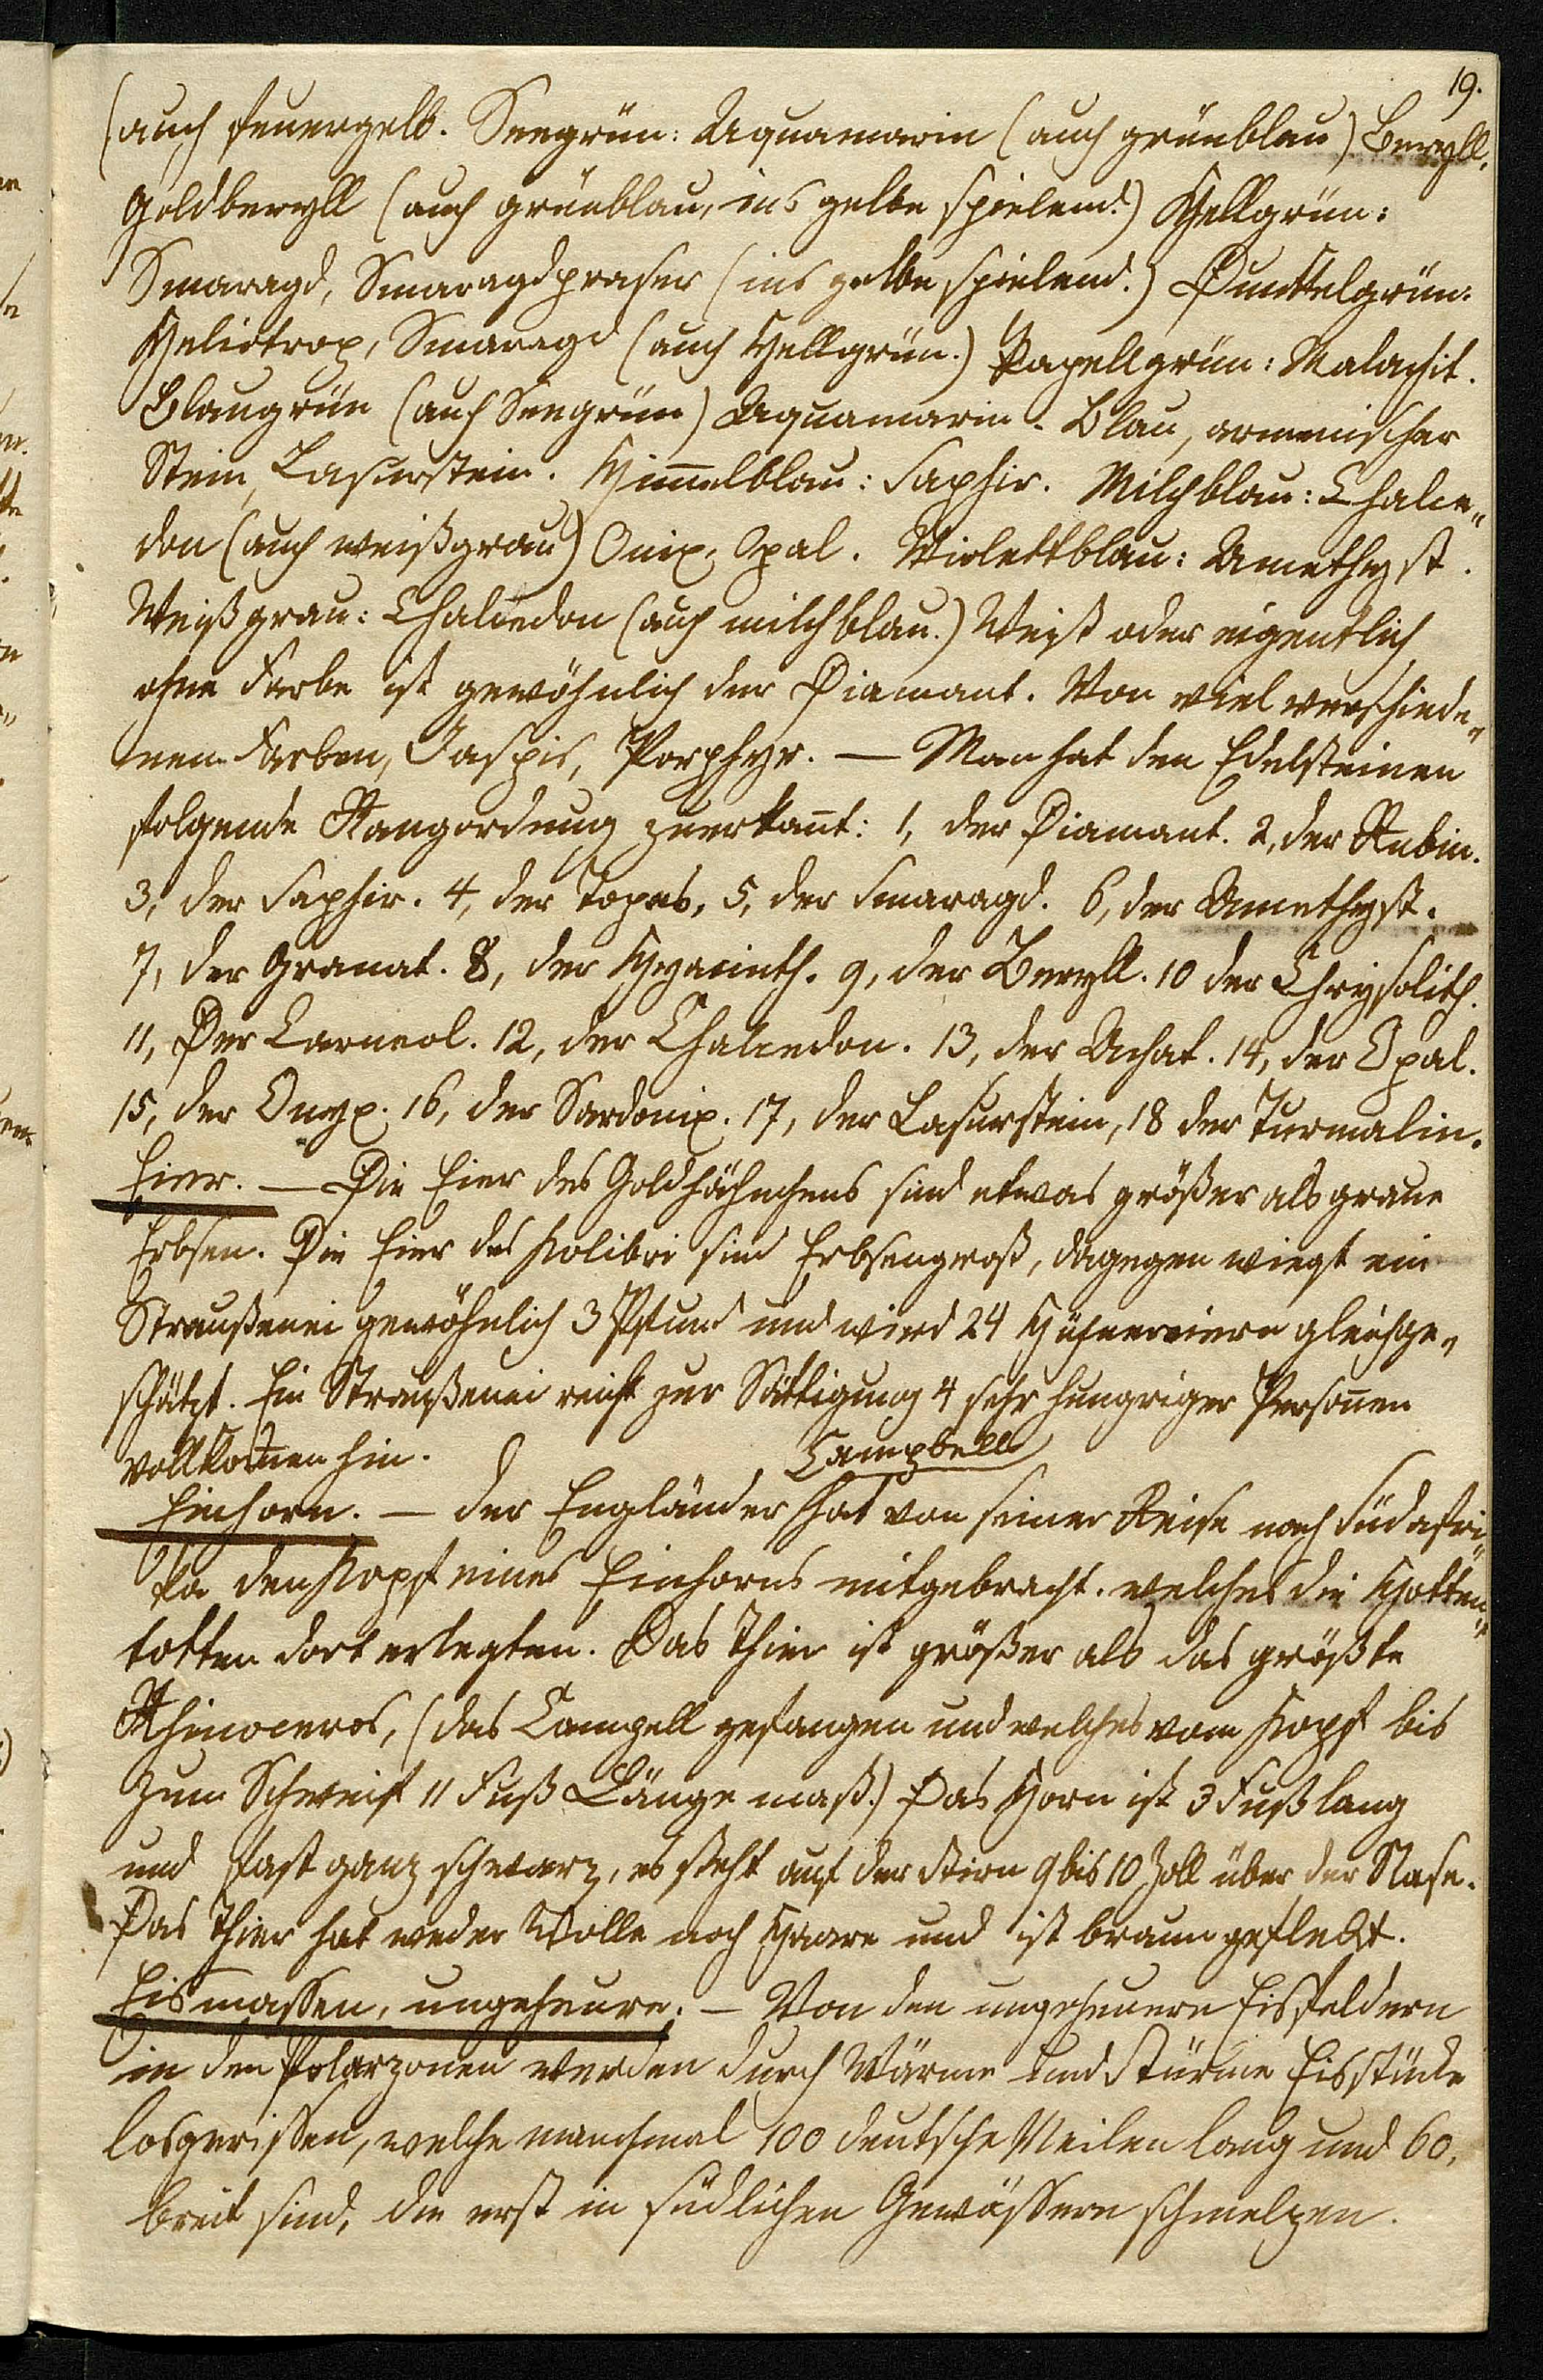 19.
(auch feuergelb. Seegrün: Aquamarin (auch grünblau) Beryll,
Goldberyll (auch grünblau, ins gelbe spielend.) Hellgrün:
Smaragd, Smaragdpraser (ins gelbe spielend.) Dunkelgrün:
Heliotrop, Smaragd (auch Hellgrün.) Papellgrün: Malachit.
Blaugrün (auch Seegrün) Aquamarin. Blau, armenischer
Stein, Lasurstein. Him̄elblau: Saphir. Milchblau: Chalce„
don (auch weißgrau) Onix, Opal. Violettblau: Amethyst.
Weißgrau: Chalcedon (auch milchblau.) Weiß oder eigentlich
ohne Farbe ist gewöhnlich der Diamant. Von viel verschiede„
nen Farben, Jaspis, Porphyr. — Man hat den Edelsteinen
folgende Rangordnung zuerkan̄t: 1, der Diamant. 2, der Rubin.
3, der Saphir. 4, der Topas, 5, der Smaragd. 6, der Amethyst.
7, der Granat. 8, der Hyacinth. 9, der Beryll. 10 der Chrysolith.
11, Der Carneol. 12, der Chalcedon. 13, der Achat. 14, der Opal.
15, der Onyx. 16, der Sardonix. 17, der Lasurstein, 18 der Turmalin.
Eier. — Die Eier des Goldhähnchens sind etwas größer als graue
Erbsen. Die Eier des Kolibri sind Erbsengroß, dagegen wiegt ein
Straußenei gewöhnlich 3 Pfund und wird 24 Hühnereiern gleichge„
schätzt. Ein Straußenei reicht zur Sättigung 4 sehr hungriger Person̄en
vollkom̄en hin.
Campbell
Einhorn. — der Engländer hat von seiner Reise nach Südafri„
ka den Kopf eines Einhorns mitgebracht. welches die Hotten„
totten dort erlegten. Das Thier ist größer als das größte
Rhinoceros, (das Campell gefangen und welches vom Kopf bis
zum Schweif 11 Fuß Länge maß.) Das Horn ist 3 Fuß lang
und fast ganz schwarz, es steht auf der Stirn 9 bis 10 Zoll über der Nase.
Das Thier hat weder Wolle noch Haare und ist braun gefleckt.
Eismassen, ungeheure. — Von den ungeheuern Eisfeldern
in den Polarzonen werden durch Wärme und Stürme Eisstücke
losgerissen, welche manchmal 100 deutsche Meilen lang und 60,
breit sind, die erst in südlichen Gewässern schmelzen.